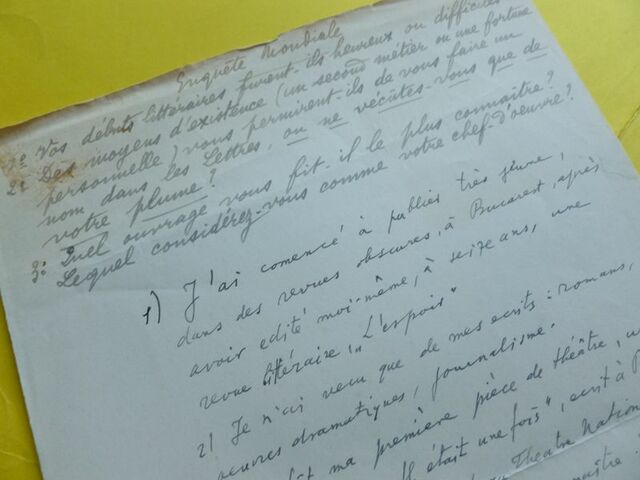 Enquête Mondiale
1º Vos débuts littéraires furent-ils heureux ou difficiles
2º Des moyens d'existence (un second métier ou une fortune
personnelle) vous permirent-ils de vous faire un
nom dans les Lettres, ou ne vécûtes-vous que de
votre plume ?
3º Quel ouvrage vous fit-il le plus connaître ?
Lequel considérez-vous comme votre chef-d'oeuvre ?
1) J'ai comencé à publier très jeune,
dans des revues obscures, à Bucarest, après
avoir edité moi-même, à seize ans, une
revue littéraire "L'espoir"
2) Je n'ai vecu que de mes ecrits : romans,
oeuvres dramatiques, journalisme.
ma première pièce de théâtre,
Il était une fois", ecrit à
Theatre Nation